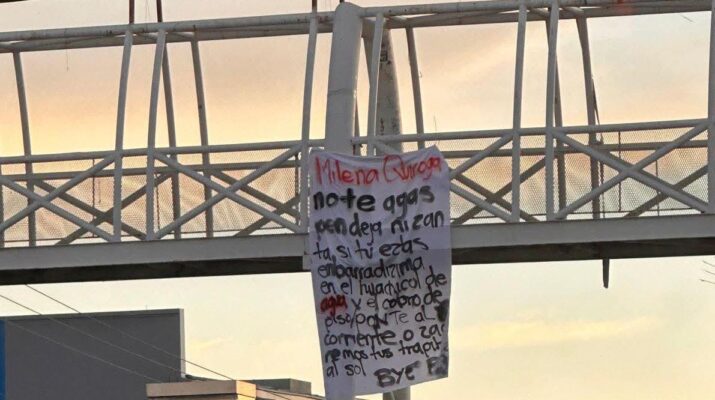 Milena Quiroga
no te agas
pendeja ni zan
ta, si tú eztas
embarradizima
en el huachicol de
agua y el cobro de
pizo, ponte al
corriente o za
remos tus trapit
al sol ByE